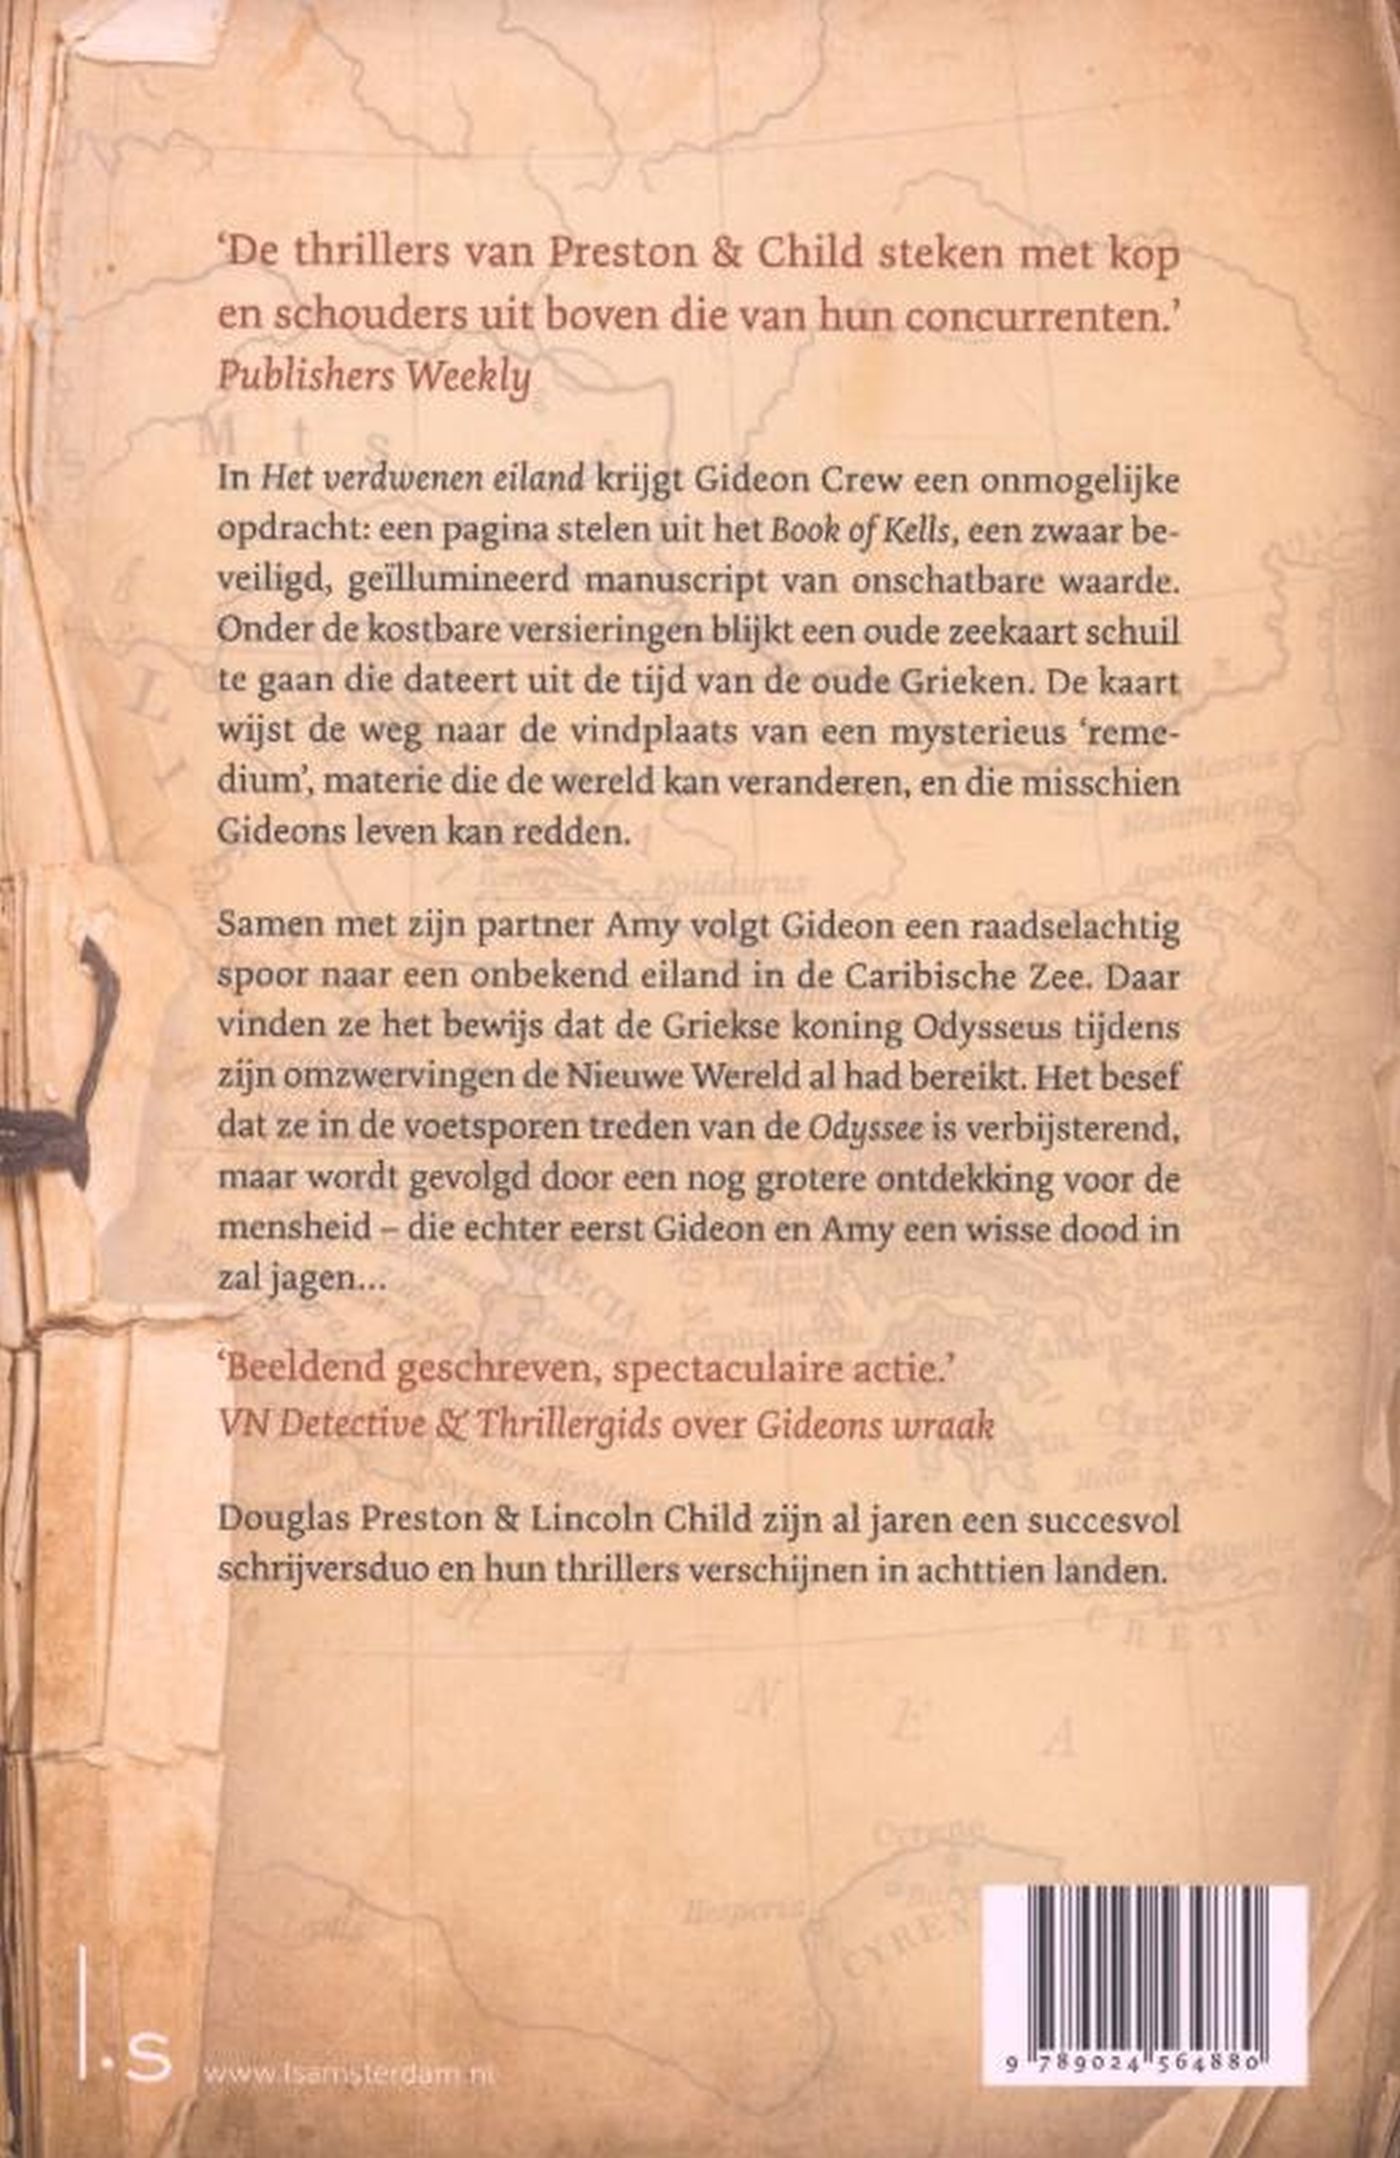 ‘De thrillers van Preston & Child steken met kop
en schouders uit boven die van hun concurrenten.’
Publishers Weekly
In Het verdwenen eiland krijgt Gideon Crew een onmogelijke
opdracht: een pagina stelen uit het Book of Kells, een zwaar be-
veiligd, geïllumineerd manuscript van onschatbare waarde.
Onder de kostbare versieringen blijkt een oude zeekaart schuil
te gaan die dateert uit de tijd van de oude Grieken. De kaart
wijst de weg naar de vindplaats van een mysterieus ‘reme-
dium’, materie die de wereld kan veranderen, en die misschien
Gideons leven kan redden.
Samen met zijn partner Amy volgt Gideon een raadselachtig
spoor naar een onbekend eiland in de Caribische Zee. Daar
vinden ze het bewijs dat de Griekse koning Odysseus tijdens
zijn omzwervingen de Nieuwe Wereld al had bereikt. Het besef
dat ze in de voetsporen treden van de Odyssee is verbijsterend,
maar wordt gevolgd door een nog grotere ontdekking voor de
mensheid – die echter eerst Gideon en Amy een wisse dood in
zal jagen...
‘Beeldend geschreven, spectaculaire actie.’
VN Detective & Thrillergids over Gideons wraak
Douglas Preston & Lincoln Child zijn al jaren een succesvol
schrijversduo en hun thrillers verschijnen in achttien landen.
l.s
www.lsamsterdam.nl
9 789024 564880